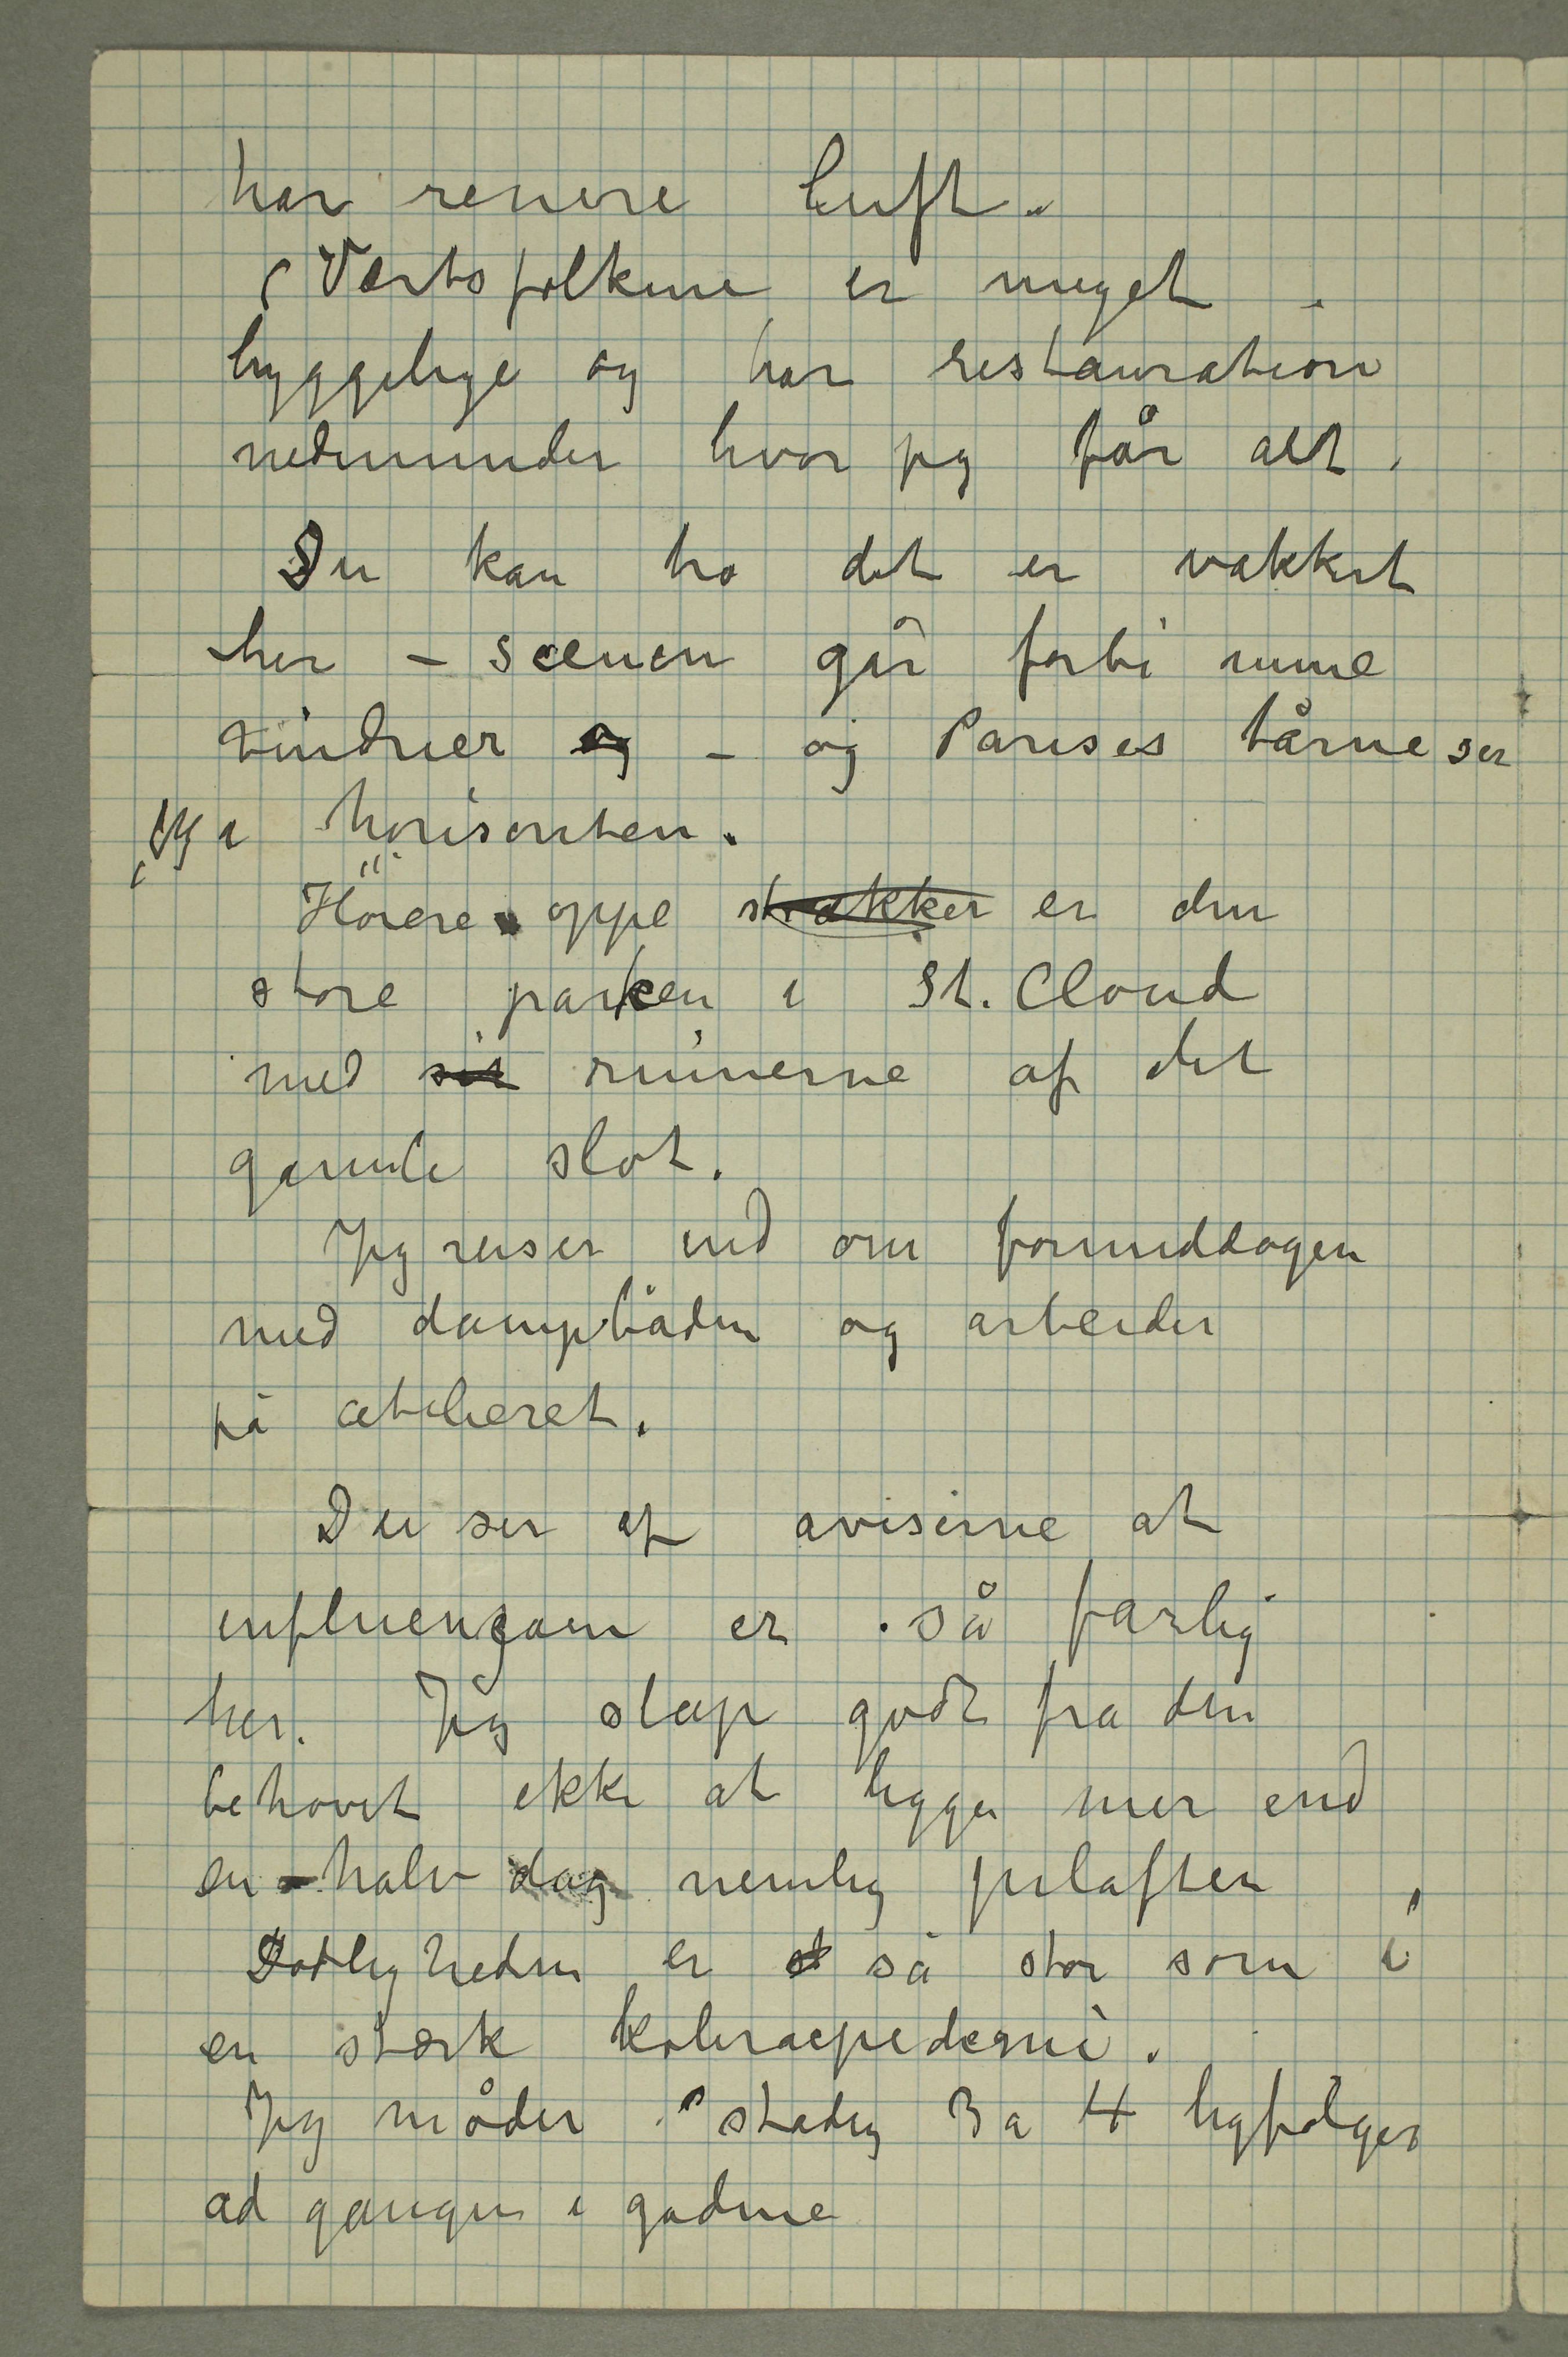 har renere luft.
Værtsfolkene er meget
hyggelige og har restauration
nedenunder hvor jeg får alt.
Du kan tro det er vakkert
her – scenen går forbi mine
vinduer og – og Parises tårne ser
jeg i horisonten.
Höiere oppe strækker er den
store parken i St. Cloud
med sit ruinerne af det
gamle slot.
Jeg reiser ind om formiddagen
med dampbåden og arbeider
på atelieret.
Du ser af aviserne at
influenzaen er så farlig
her. Jeg slap godt fra den
behøvet ikke at ligge mer end
en halv dag nemlig juleaften
Dødligheden er så stor som i
en stærk koleraepedemi.
Jeg møder stadig 3 a 4 ligfølger
ad gangen i gadene